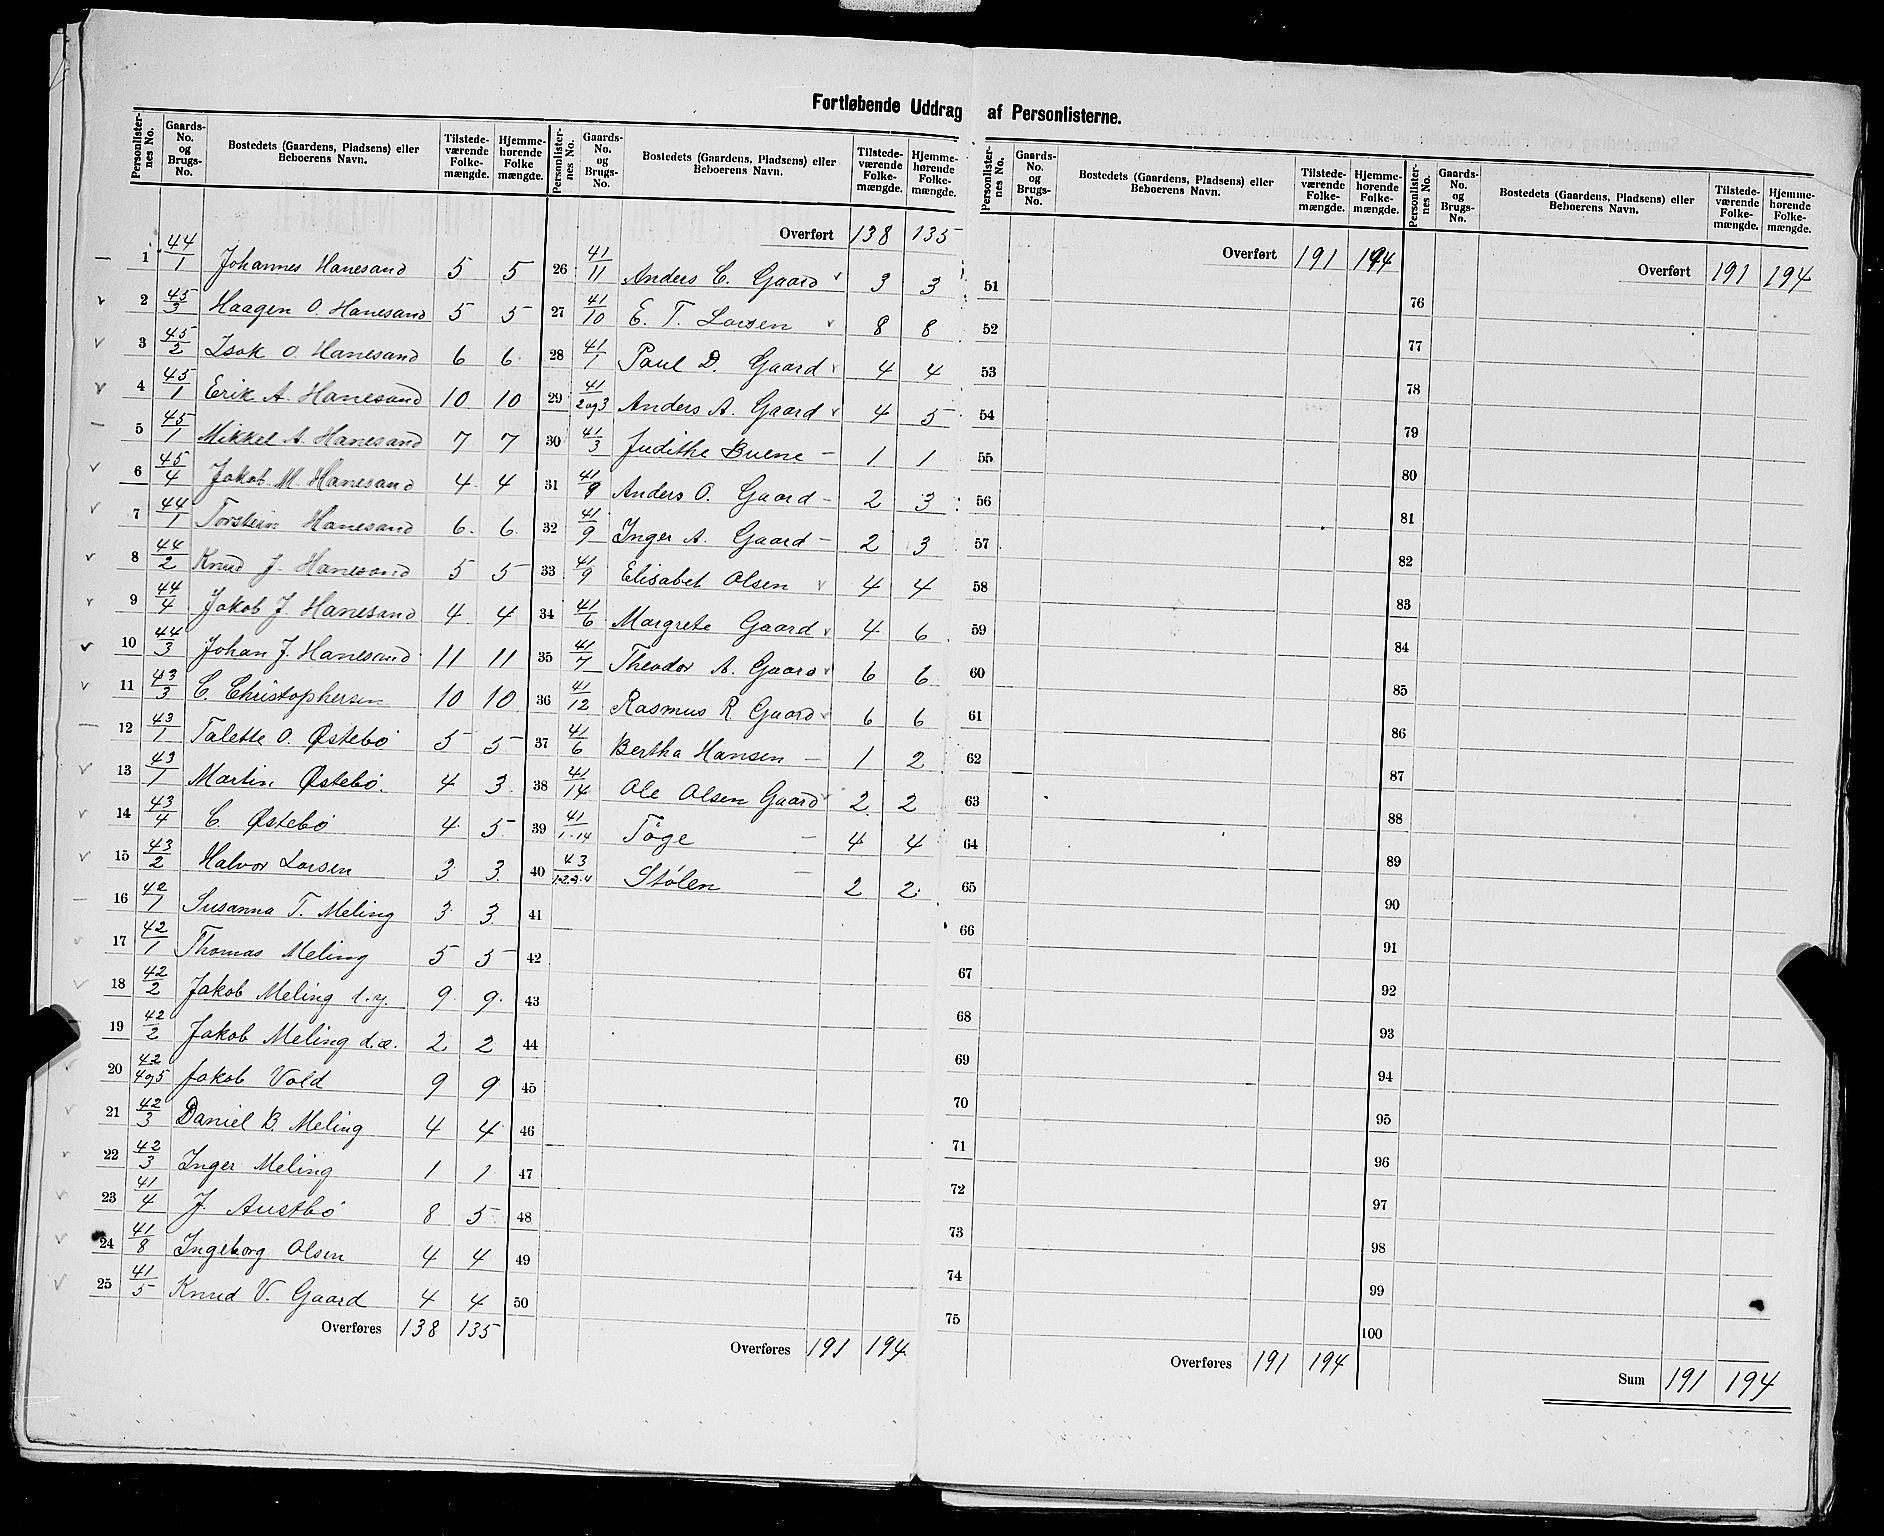 Fortløbende Uddrag af Personlisterne.
Personlister-nes No. | Gaards-No. og Brugs-No. | Bostedets (Gaardens, Pladsens) eller Beboerens Navn. | Tilstede-værende Folke-mængde. | Hjemme-hørende Folke mængde.
1 44/1 Johannes Hanesand 5 5
2 45/3 Haagen O. Hanesand 5 5
3 45/2 Isak O Hanesand 6 6
4 45/1 Erik A. Hanesand 10 10
5 45/1 Mikkel A. Hanesand 7 7
6 45/4 Jakob M. Hanesand 4 4
7 44/1 Torstein Hanesand 6 6
8 44/2 Knud J. Hanesand 5 5
9 44/4 Jakob J. Hanesand 4 4
10 44/3 Johan J. Hanesand 11 11
11 43/3 C. Christophersen 10 10
12 43/1 Talette O. Østebø 5 5
13 43/1 Martin Østebø. 4 3
14 43/4 C. Østebø 4 5
15 43/2 Halvor Larsen 3 3
16 42/1 Susanna T. Meling 3 3
17 42/1 Thomas Meling 5 5
18 42/2 Jakob Meling d.y. 9 9
19 42/2 Jakob Meling d.æ. 2 2
20 42/4og5 Jakob Vold 9 9
21 42/3 Daniel B. Meling 4 4
22 42/3 Inger Meling 1 1
23 41/4 J. Austbø 8 5
24 41/8 Ingeborg Olsen 4 4
25 41/5 Knud V. Gaard 4 4
Overføres 138 135
Personlister-nes No. | Gaards-No. og Brugs-No. | Bostedets (Gaardens, Pladsens) eller Beboerens Navn. | Tilstede-værende Folke-mængde. | Hjemme-hørende Folke-mængde.
Overført 138 135
26 41/11 Anders C. Gaard v 3 3
27 41/10 E. T. Larsen v 8 8
28 41/1 Paul D. Gaard v 4 4
29 41/2og3 Anders A. Gaard v 4 5
30 41/3 Judithe Buene - 1 1
31 41/9 Anders O. Gaard - 2 3
32 41/9 Inger A. Gaard - 2 3
33 41/9 Elisabet Olsen v 4 4
34 41/6 Margrete Gaard v 4 6
35 41/7 Theodor A. Gaard v 6 6
36 41/12 Rasmus R Gaard v 6 6
37 41/6 Bertha Hansen - 1 2
38 41/14 Ole Olsen Gaard v 2 2
39 41/1-14 Tøge - 4 4
40 43/1-2-3-4 Stølen - 2 2
41
42
43
44
45
46
47
48
49
50
Overføres 191 194
Personlister-nes No. | Gaards-No. og Brugs-No. | Bostedets (Gaardens, Pladsens) eller Beboerens Navn. | Tilstede-værende Folke-mængde. | Hjemme-hørende Folke-mængde.
Overført 191 194
51
52
53
54
55
56
57
58
59
60
61
62
63
64
65
66
67
68
69
70
71
72
73
74
75
Overføres 191 194
Personlister-nes No. | Gaards-No. og Brugs-No. | Bostedets (Gaardens, Pladsens) eller Beboerens Navn. | Tilstede-værende Folke-mængde. | Hjemme-hørende Folke-mængde.
Overført 191 194
76
77
78
79
80
81
82
83
84
85
86
87
88
89
90
91
92
93
94
95
96
97
98
99
100
Sum 191 194